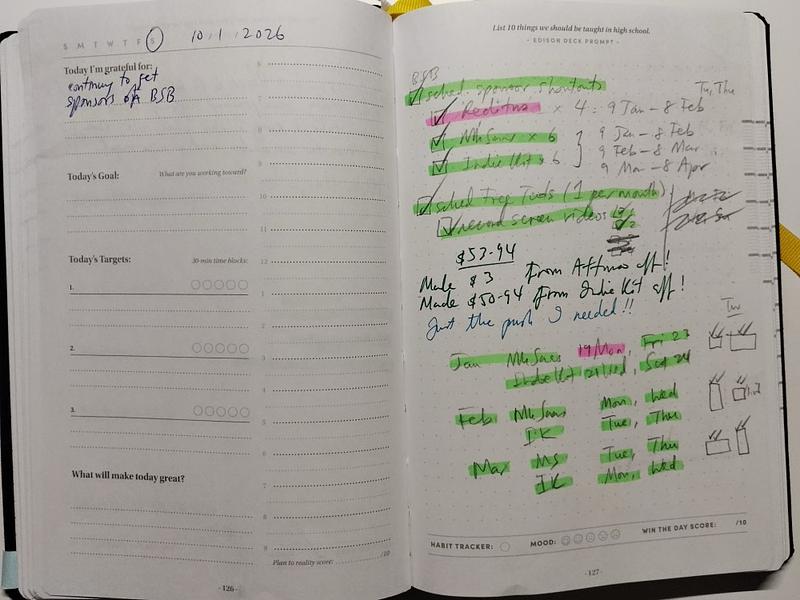 S M T W T F S 10/1/2026
Today I'm grateful for:
continuing to get
sponsors of BSB
Today's Goal: What are you working toward?
Today's Targets: 30-min time blocks:
1.
2.
3.
What will make today great?
6
7
8
9
10
11
12
1
2
3
4
5
6
7
8
9
Plan to reality score: /10
- 126 -
List 10 things we should be taught in high school.
- EDISON DECK PROMPT -
BSB
sched. sponsor shoutouts
Tu, Thu
Reditus × 4 : 9 Jan - 8 Feb
MkSaas × 6 9 Jan - 8 Feb
9 Feb - 8 Mar
Indie Kit × 6 9 Mar - 8 Apr
sched Free Tools (1 per month)
record screen videos
$53.94
Made $3 from Affmaa aff!
Made $50.94 from Indie Kit aff!
Just the push I needed!!
Tu
Jan MkSaas 19 Mon, Fri 23
Indie Kit 21 Wed, Sat 24
Feb MkSaas Mon, Wed
IK Tue, Thu
Mar MS Tue, Thu
IK Mon, Wed
HABIT TRACKER: MOOD: WIN THE DAY SCORE: /10
- 127 -